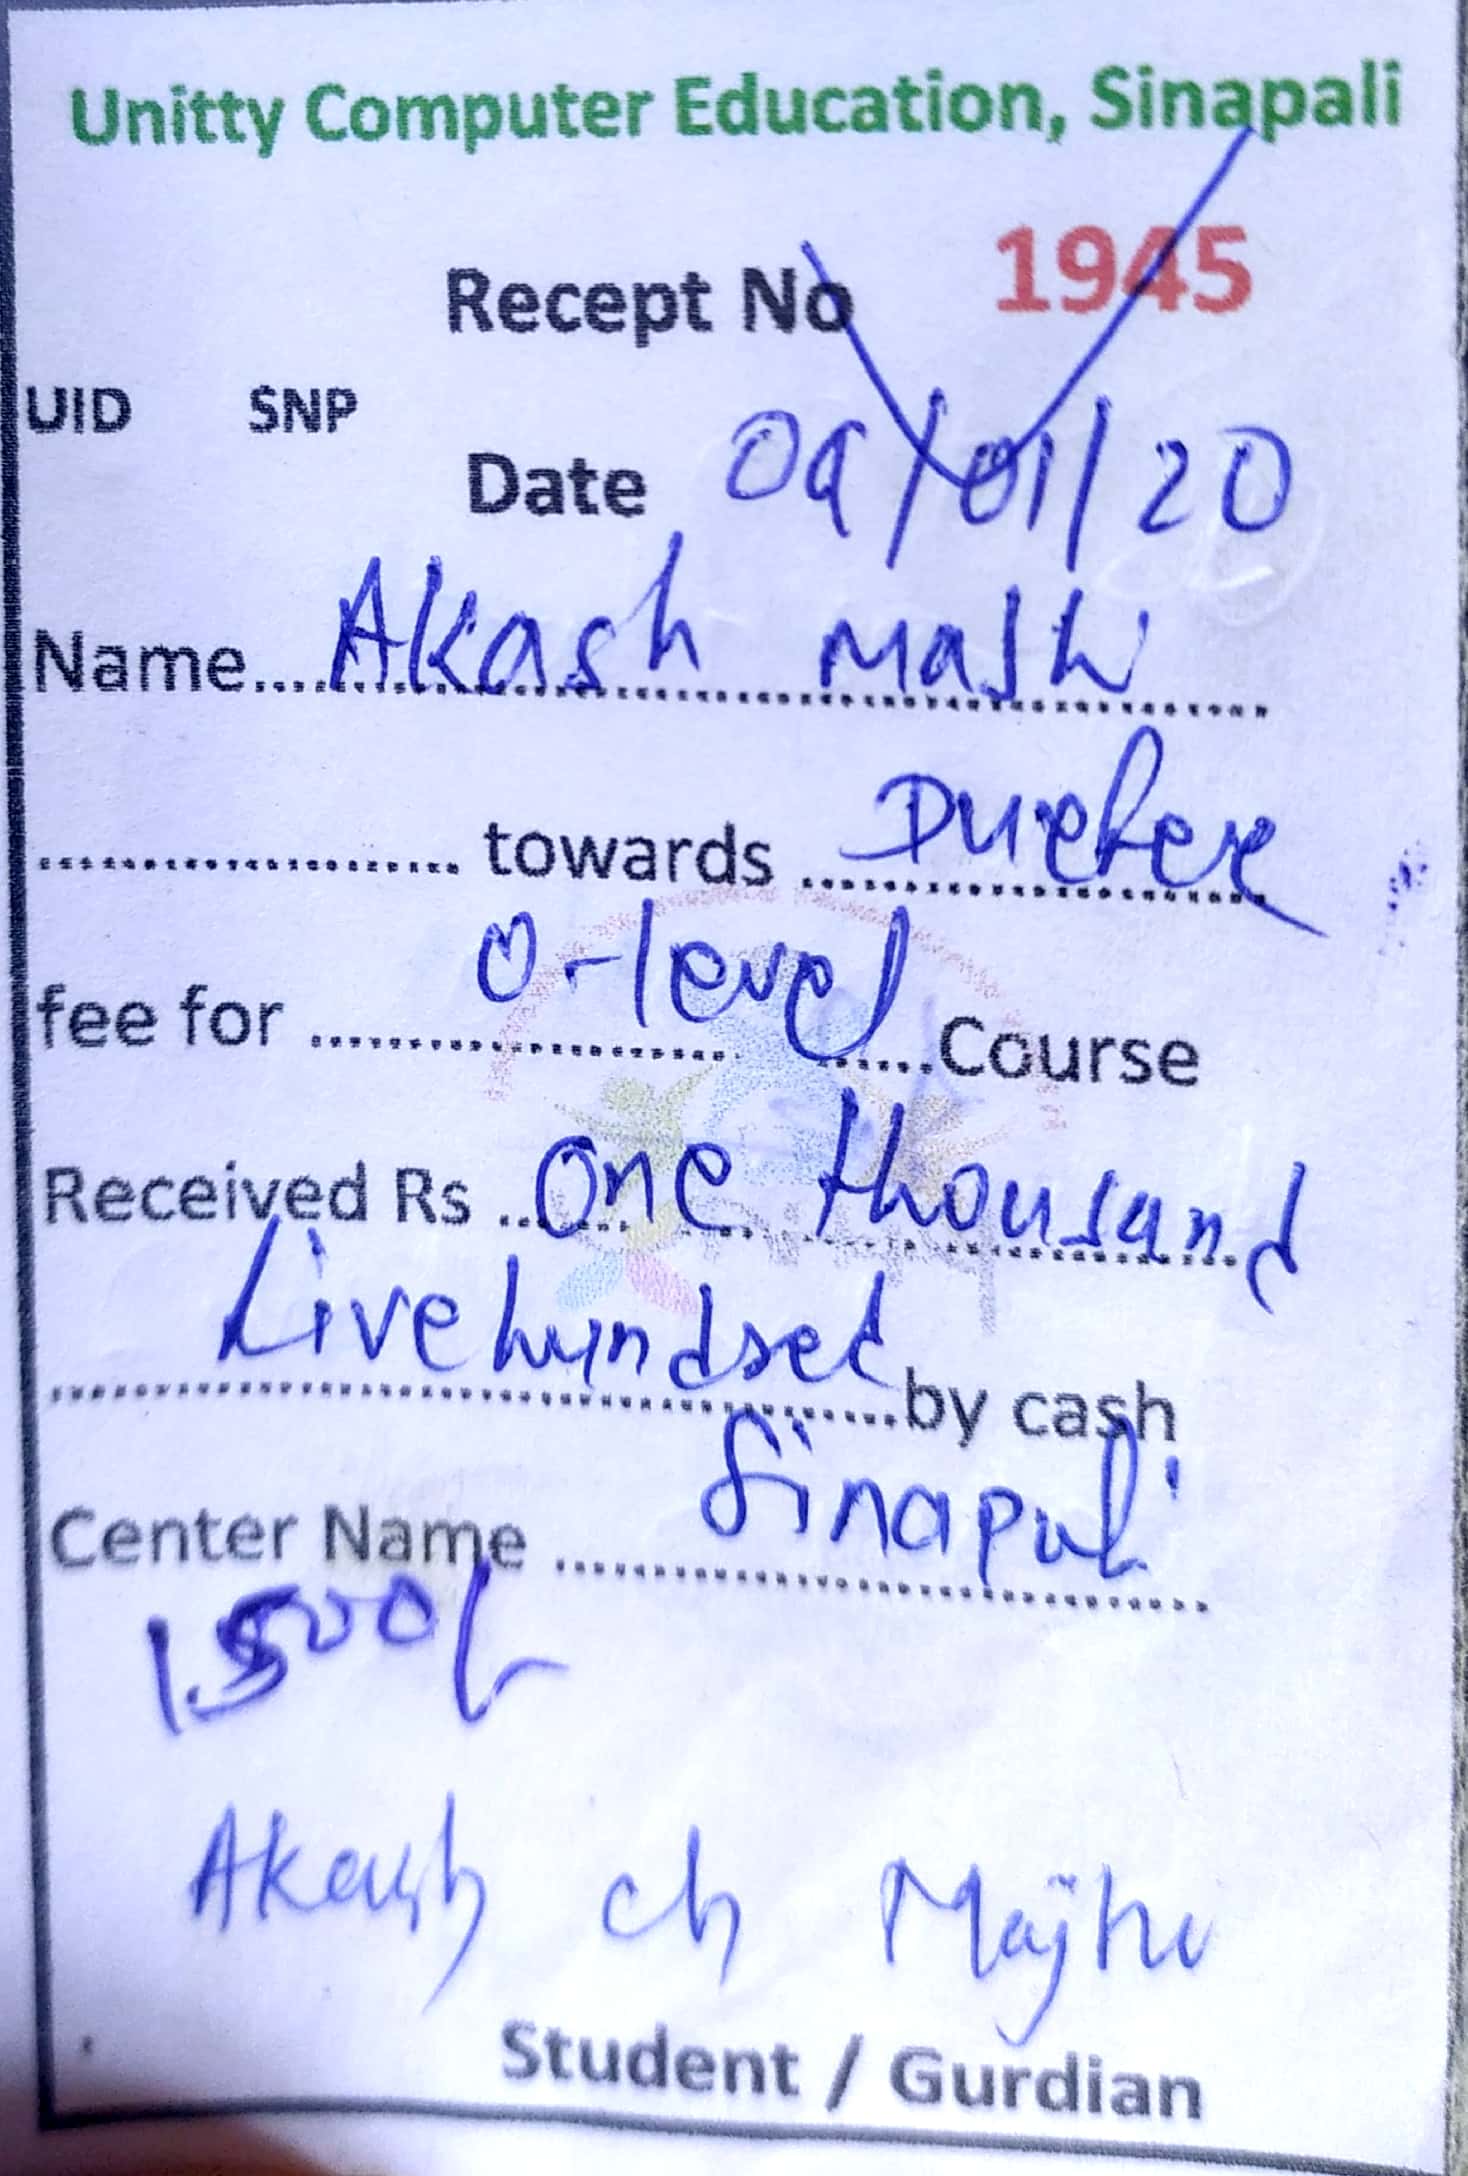 Unitty Computer Education, Sinapali
Recept No 1945
UID SNP
Date 09/01/20
Name.... Akash Majhi
towards
fee for O-level Course
Received Rs One thousand
five hundred by cash
Center Name Sinapali
1.500/-
Akash ch Majhi
Student / Gurdian